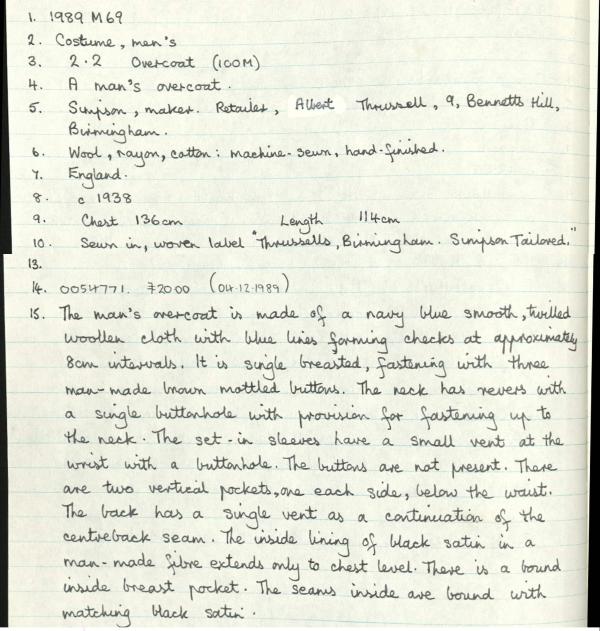 1. 1989 M69
2. Costume, men's
3. 2.2 Overcoat (100M)
4. A man's overcoat.
5. Simpson, maker. Retailer, Albert Thrussell, 9, Bennetts Hill,
Birmingham.
6. Wool, rayon, cotton: machine-sewn, hand-finished.
7. England.
8. c 1938
9. Chest 136cm Length 114cm
10. Sewn in, woven label "Thrussells, Birmingham. Simpson Tailored."
13.
14. 0054771. £20.00 (04.12.1989)
15. The man's overcoat is made of a navy blue smooth, twilled
woollen cloth with blue lines forming checks at approximately
8cm intervals. It is single breasted, fastening with three
man-made brown mottled buttons. The neck has revers with
a single buttonhole with provision for fastening up to
the neck. The set-in sleeves have a small vent at the
wrist with a buttonhole. The buttons are not present. There
are two vertical pockets, one each side, below the waist.
The back has a single vent as a continuation of the
centreback seam. The inside lining of black satin in a
man-made fibre extends only to chest level. There is a bound
inside breast pocket. The seams inside are bound with
matching black satin.